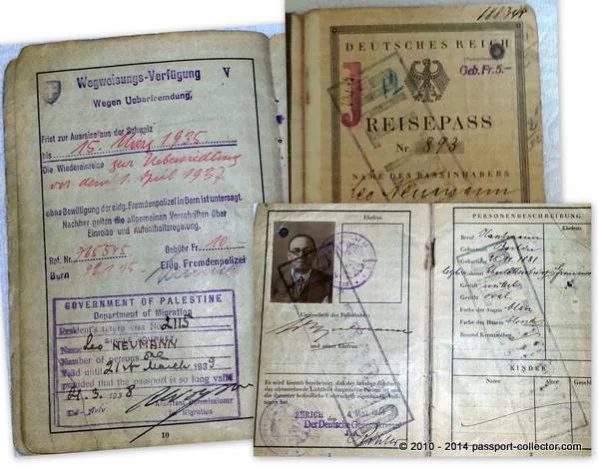 Wegweisungs-Verfügung V
Wegen Ueberfremdung.
Frist zur Ausreise aus der Schweiz
bis 15. März 1935
Die Wiedereinreise zur Uebersiedlung
vor dem 1. April 1937
ohne Bewilligung der eidg. Fremdenpolizei in Bern ist untersagt.
Nachher gelten die allgemeinen Vorschriften über
Einreise und Aufenthaltsregelung.
Ref. Nr. 765545 Gebühr Fr. 10
Bern Eidg. Fremdenpolizei
GOVERNMENT OF PALESTINE
Department of Migration
Resident's return visa No. 2115
Name Leo NEUMANN
Number of persons one
Valid until 21st March 1939
provided that the passport is so long valid
21. 3. 1938
Tel-Aviv
Assistant Commissioner
for Migration
10
188344
DEUTSCHES REICH
J
Geb. Fr. 5.-
REISEPASS
Nr. 893
NAME DES PASSINHABERS
Leo Neumann
Ehefrau
Unterschrift des Paßinhabers
und seiner Ehefrau
Es wird hiermit bescheinigt, daß der Inhaber die
durch das obenstehende Lichtbild dargestellte Person ist
ZÜRICH
4. Mai
2
PERSONENBESCHREIBUNG
Ehefrau
Beruf Kaufmann
Geburtsort Berlin
Geburtstag 1881
Gestalt mittel
Gesicht oval
Farbe der Augen blau
Farbe des Haares
Besond. Kennzeichen
KINDER
Name Alter
3
© 2010 - 2014 passport-collector.com